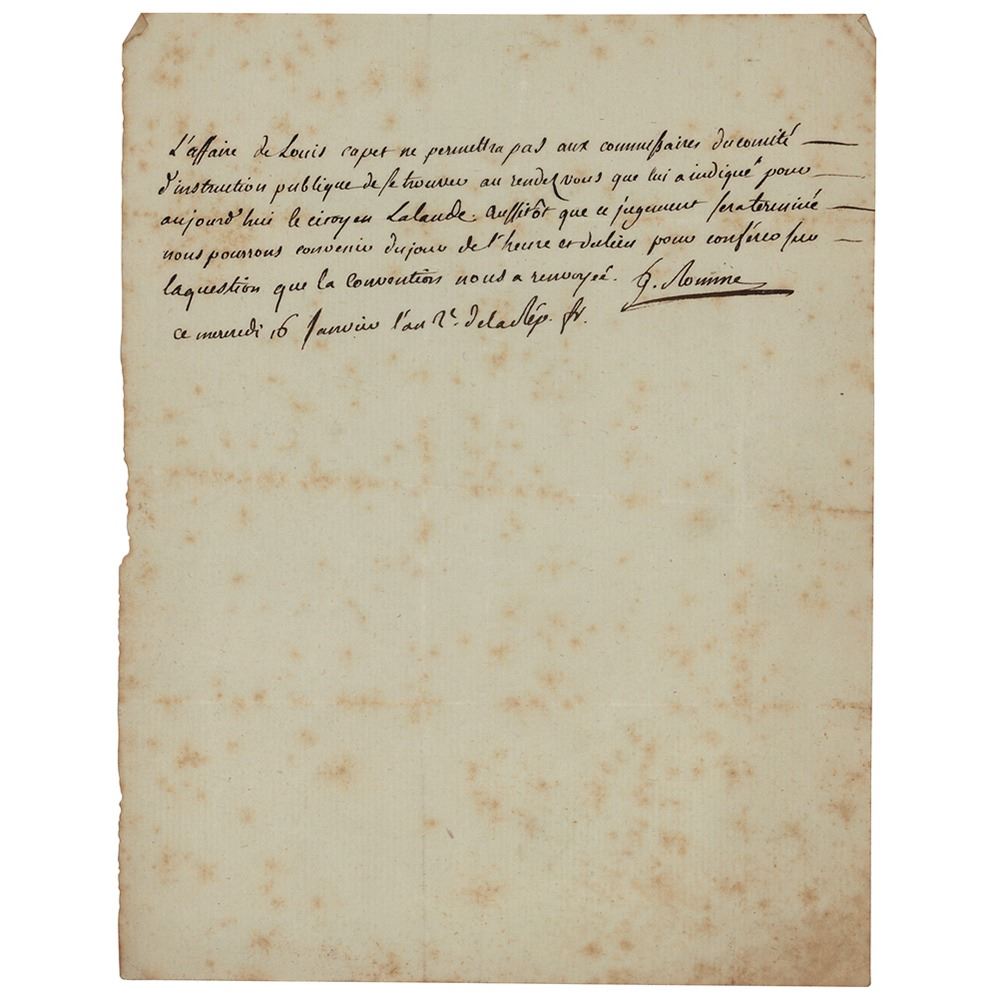 L'affaire de Louis capet ne permettra pas aux commissaires du comité —
d'instruction publique de se trouver au rendez vous que lui a indiqué pour —
aujourd'hui le citoyen Lalande. Aussitôt que ce jugement sera terminé —
nous pourrons convenir du jour de l'heure et du lieu pour conférer sur —
la question que la Convention nous a renvoyée. G. Romme
ce mercredi 16 Janvier l'an 2e. de la Rép. fr.